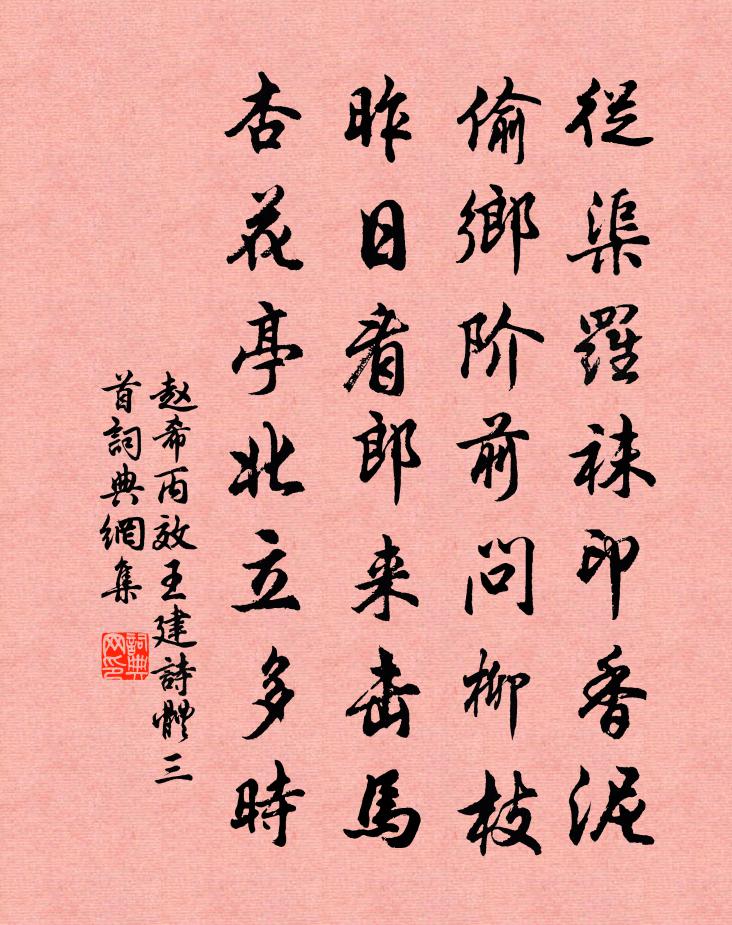 從渠羅袜印香泥
偷鄉阶前問柳枝
昨日看郎来击馬
杏花亭北立多時
赵希丙效王建詩體三
首詞典網集
詞典
网印